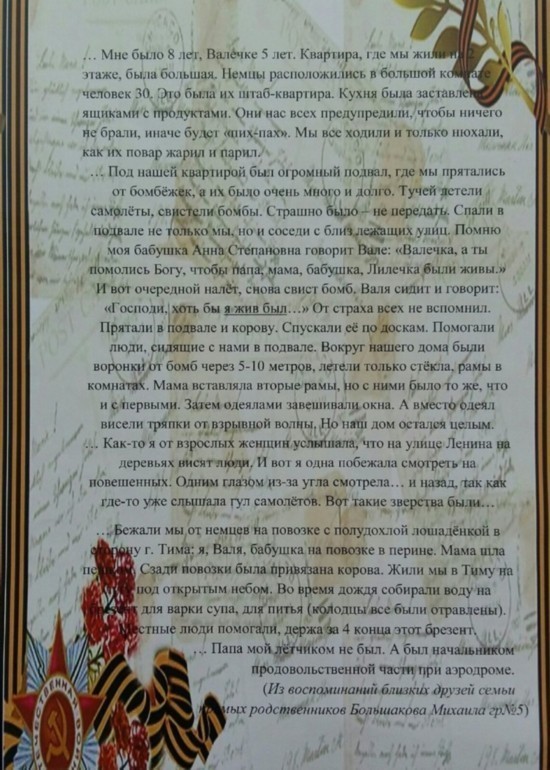 … Мне было 8 лет, Валечке 5 лет. Квартира, где мы жили на 2
этаже, была большая. Немцы расположились в большой комнате
человек 30. Это была их штаб-квартира. Кухня была заставлена
ящиками с продуктами. Они нас всех предупредили, чтобы ничего
не брали, иначе будет «пих-пах». Мы все ходили и только нюхали,
как их повар жарил и парил.
… Под нашей квартирой был огромный подвал, где мы прятались
от бомбёжек, а их было очень много и долго. Тучей летели
самолёты, свистели бомбы. Страшно было – не передать. Спали в
подвале не только мы, но и соседи с близ лежащих улиц. Помню
моя бабушка Анна Степановна говорит Вале: «Валечка, а ты
помолись Богу, чтобы папа, мама, бабушка, Лилечка были живы.»
И вот очередной налёт, снова свист бомб. Валя сидит и говорит:
«Господи, хоть бы я жив был…» От страха всех не вспомнил.
Прятали в подвале и корову. Спускали её по доскам. Помогали
люди, сидящие с нами в подвале. Вокруг нашего дома были
воронки от бомб через 5-10 метров, летели только стёкла, рамы в
комнатах. Мама вставляла вторые рамы, но с ними было то же, что
и с первыми. Затем одеялами завешивали окна. А вместо одеял
висели тряпки от взрывной волны. Но наш дом остался целым.
… Как-то я от взрослых женщин услышала, что на улице Ленина на
деревьях висят люди. И вот я одна побежала смотреть на
повешенных. Одним глазом из-за угла смотрела… и назад, так как
где-то уже слышала гул самолётов. Вот такие зверства были…
… Бежали мы от немцев на повозке с полудохлой лошадёнкой в
сторону г. Тима; я, Валя, бабушка на повозке в перине. Мама шла
пешком. Сзади повозки была привязана корова. Жили мы в Тиму на
под открытым небом. Во время дождя собирали воду на
брезент для варки супа, для питья (колодцы все были отравлены).
Местные люди помогали, держа за 4 конца этот брезент.
… Папа мой лётчиком не был. А был начальником
продовольственной части при аэродроме.
(Из воспоминаний близких друзей семьи
родственников Большакова Михаила гр№5)
ОТЕЧЕСТВЕННАЯ